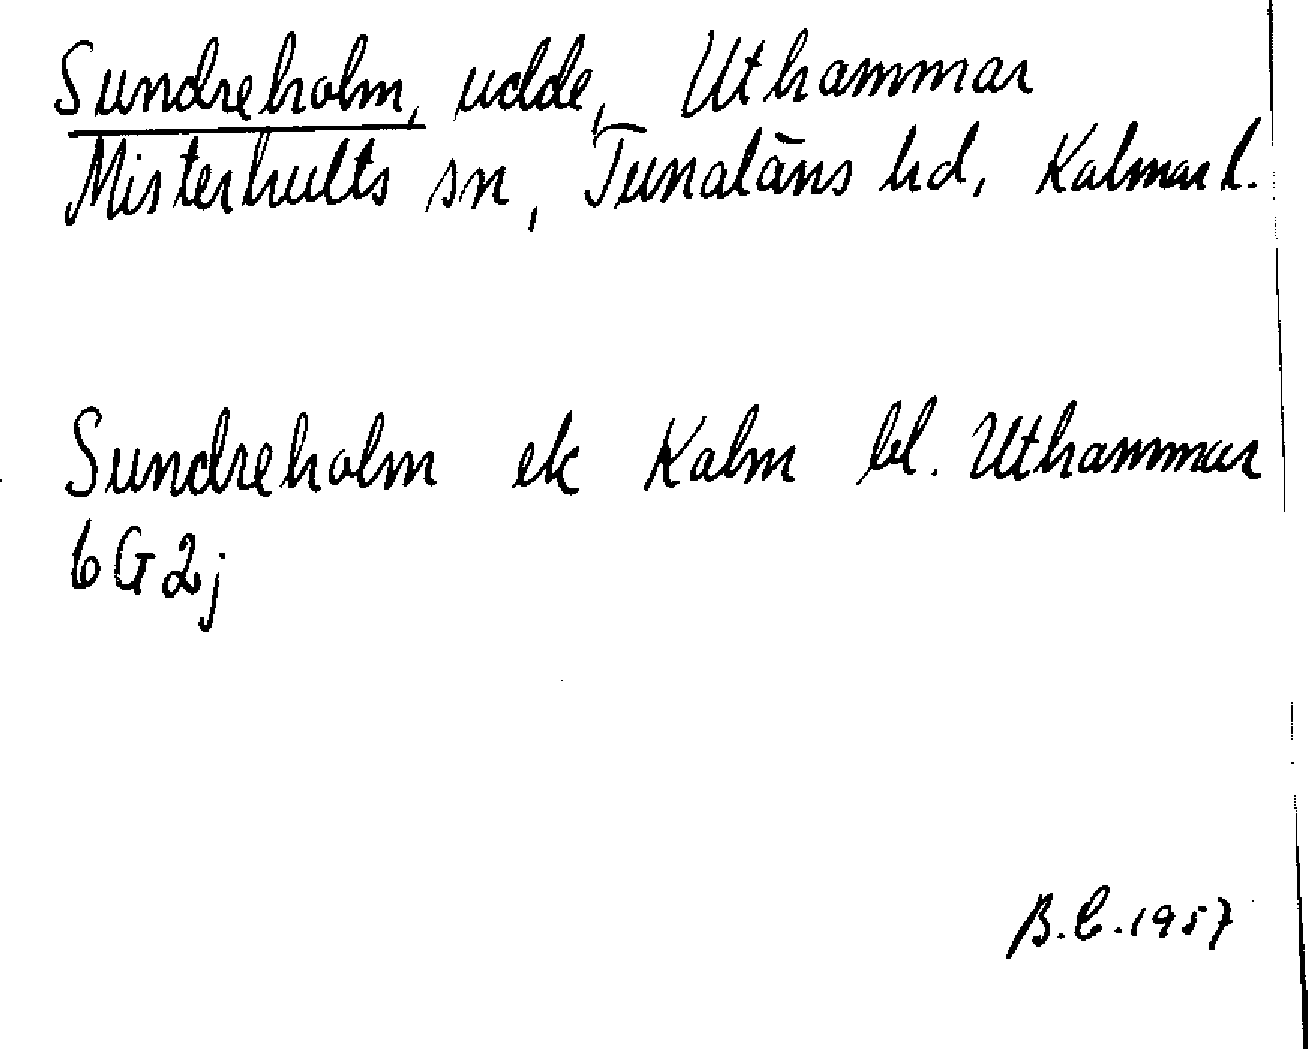 Sundreholm, udde, Uthammar
Misterhults sn, Tunaläns hd, Kalmar l.
Sundreholm ek Kalm bl. Uthammar
6G2j
B.C.1957